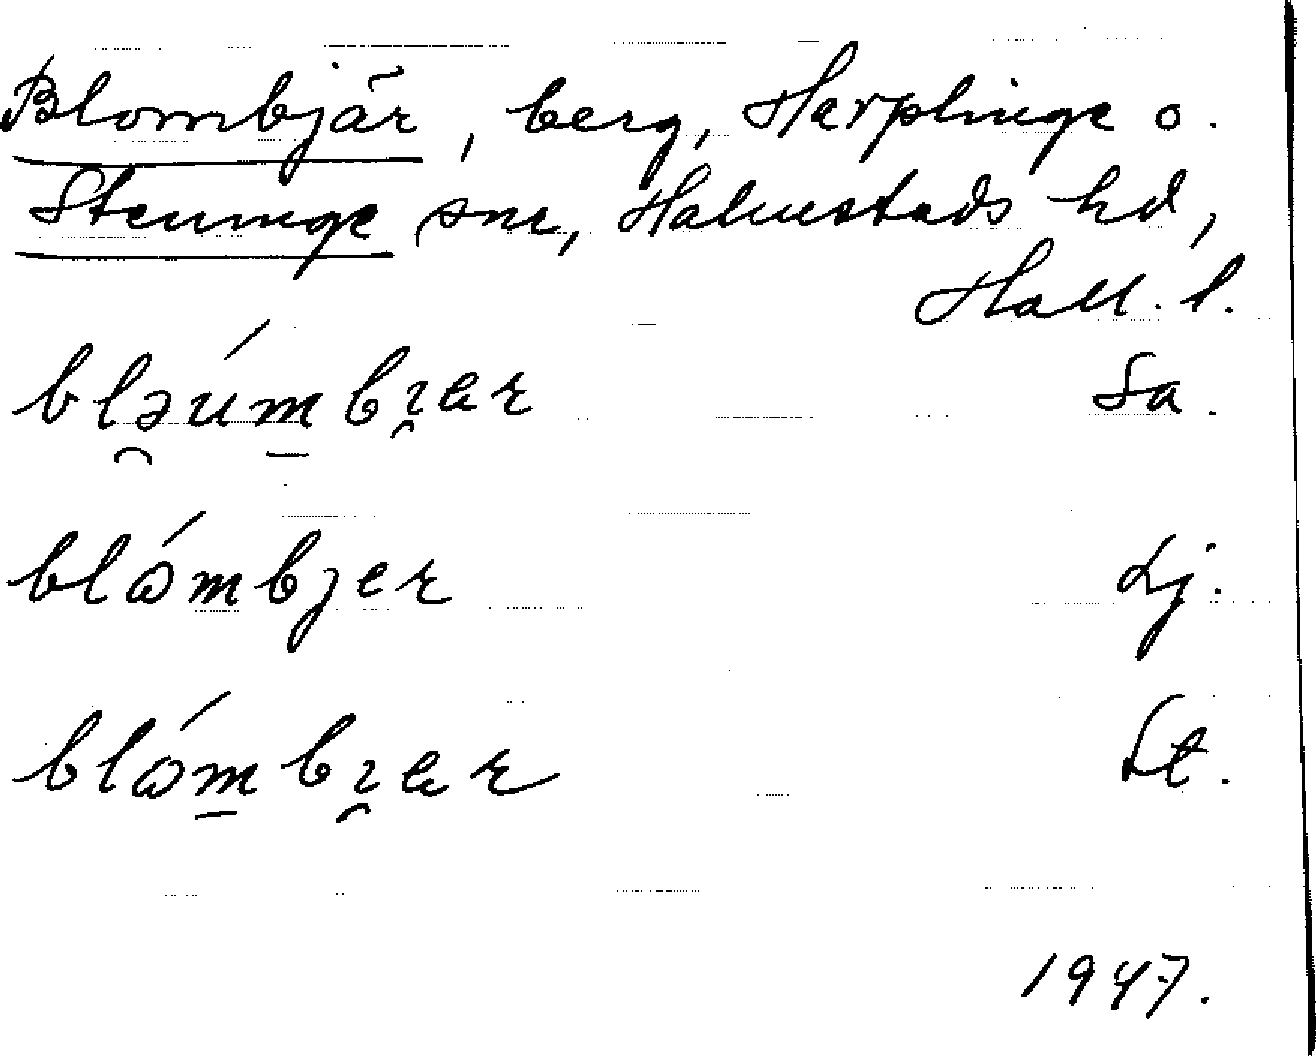 Blombjär, berg, Harplinge o.
Steninge snr, Halmstads hd,
Hall. l.
bləúmbɪ̯er Sa.
blɷ́mbjer Lj.
blɷ́mbɪ̯er St.
1947.